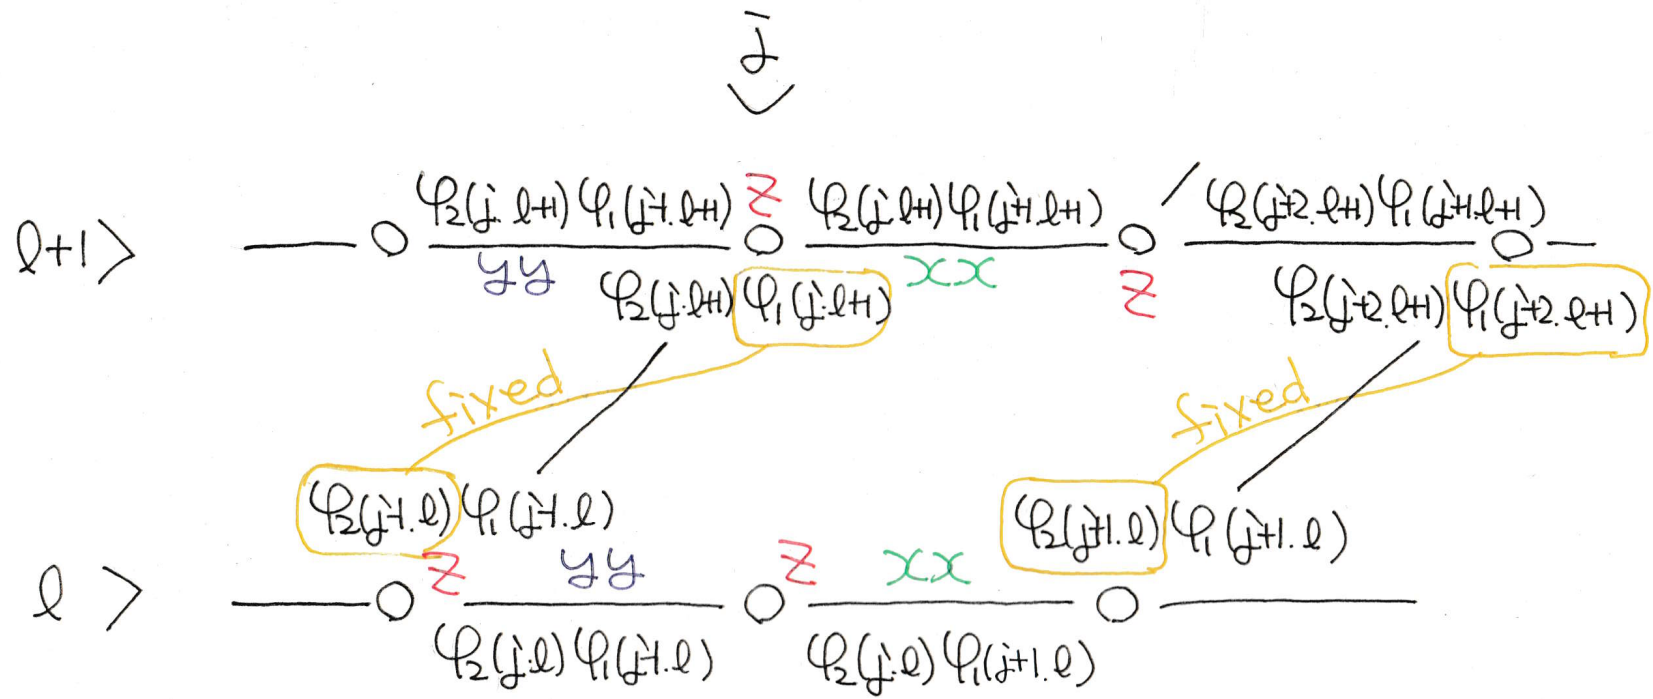 j
φ₂(j. l+1) φ₁(j-1. l+1) Z φ₂(j. l+1) φ₁(j+1. l+1) φ₂(j+2. l+1) φ₁(j+1. l+1)
l+1>
yy xx Z
φ₂(j. l+1) φ₁(j. l+1) φ₂(j+2. l+1) φ₁(j+2. l+1)
fixed fixed
φ₂(j-1. l) φ₁(j-1. l) φ₂(j+1. l) φ₁(j+1. l)
Z yy Z xx
l >
φ₂(j. l) φ₁(j-1. l) φ₂(j. l) φ₁(j+1. l)